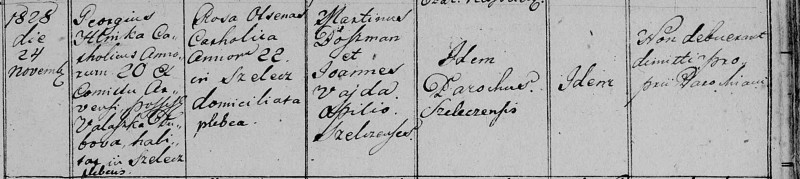 1828
die
24
Novemb
Georgius
Hlinka Ca-
tholicus Anno-
rum 20 e
Comitu Ar-
vensi, possess
Valaszka Du-
bova, habi-
tas in Szelecz
plebeus.
Rosa Otsenas
Catholica
Annorum 22.
in Szelecz
domiciliata
plebea.
Martinus
Doszman
et
Joannes
Vajda.
Opilio.
Szelczenses.
Idem
Parochus.
Szeleczensis
Idem
Non debuerant
dimitti pro-
prii Parochiani